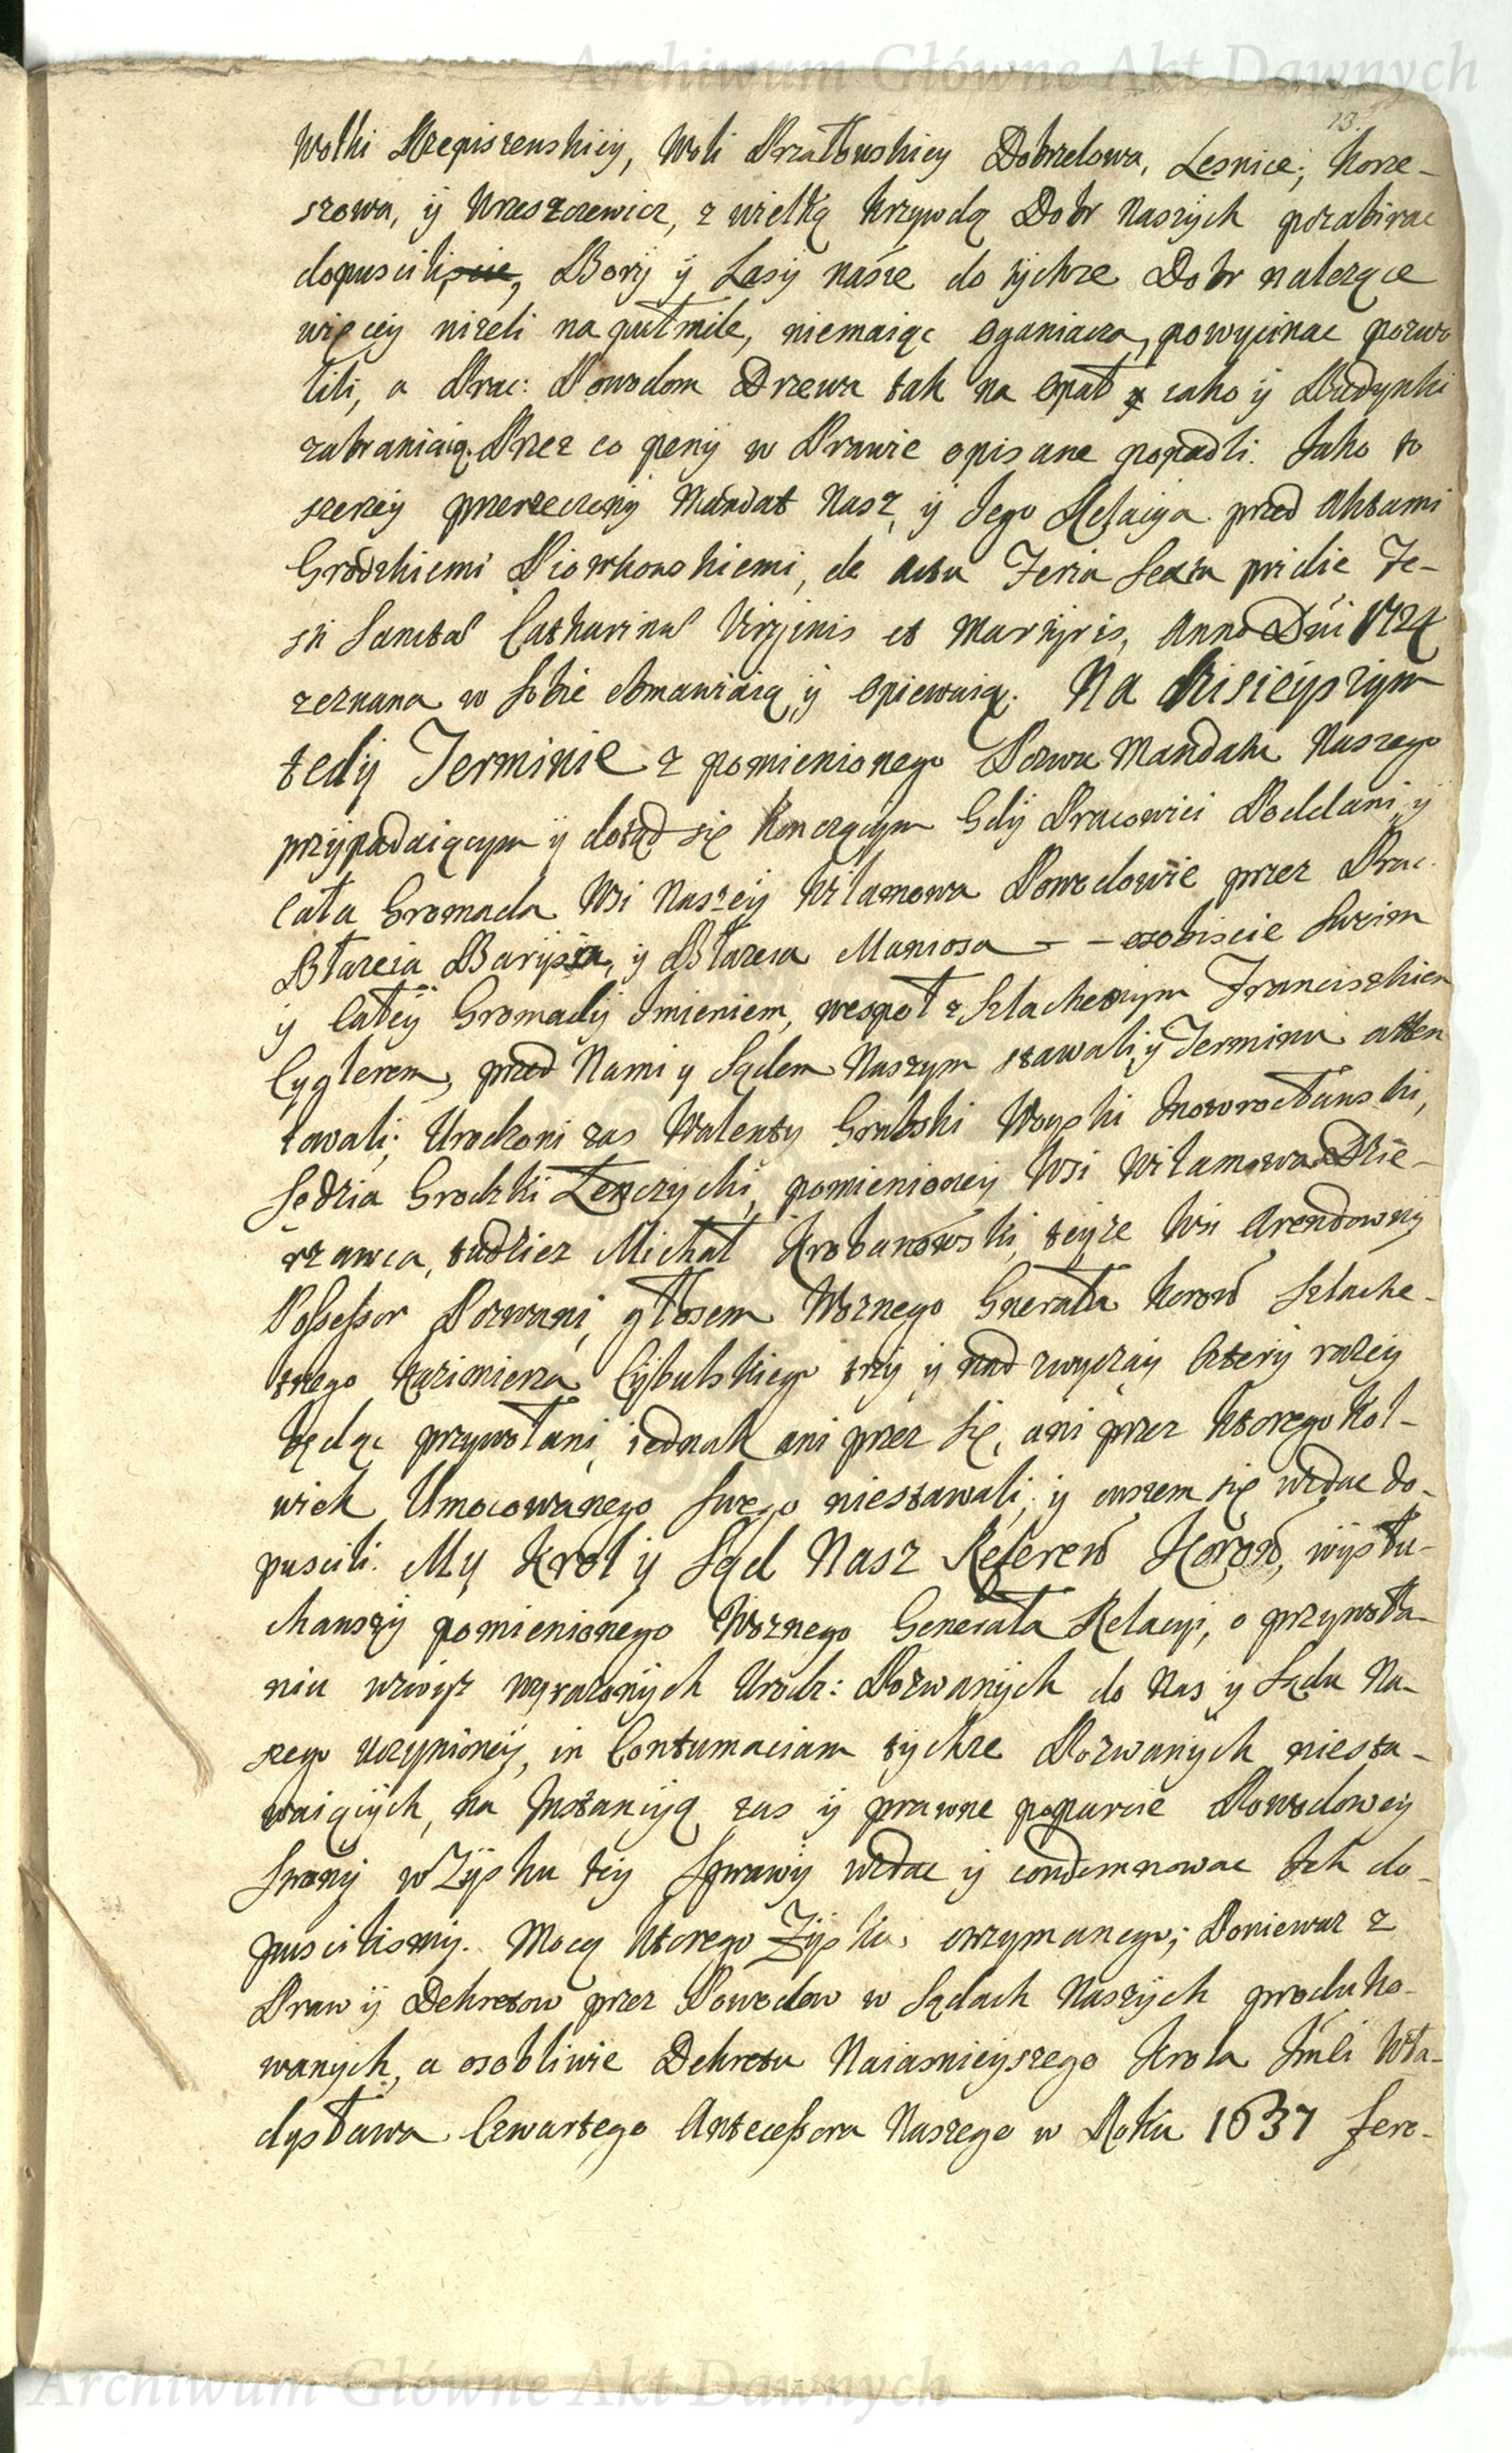 Archiwum Główne Akt Dawnych
13.
Wolki Rzepiszewskiey, Woli Przatowskiey Dobrzelowa, Lesnice; Korze-
szowa, ÿ Wrzeszczewicz, z wielką krzywdą Dobr Naszÿch pozabirac
dopuscili, Borÿ ÿ Lasÿ nasze do tÿchze Dobr nalezące
więcey nizeli na pułmile, niemaiąc oganiacza, powycinac pozwo
lili, a Prac: Powodom Drzewa tak na Opał iako ÿ Budynki
zabraniaią. Przez co penÿ w Prawie opisane popadli. Jako to
szerzey przerzeczonÿ Mandat Nasz, ÿ Jego Relacÿa przed Aktami
Grodzkiemi Piotrkowskiemi, de Actu Feria Sexta pridie Fe-
sti Sanctæ Catharinæ Virginis et Martÿris, Anno Dñi 1724
zeznana w Sobie obmawiaią ÿ Opiewaią. Na dzisieÿszym
tedÿ Terminie z pomienionego Pozwu Mandatu Naszego
przÿpadaiącym ÿ dotąd się konczącÿm Gdÿ Pracowici Poddani ÿ
Cała Gromada Wsi Naszey Wilamowa Powodowie przez Prac.
Błazeia Barÿsia, ÿ Błazeia Maniosa - - osobiscie Swoim
ÿ Całeÿ Gromadÿ Imieniem, wespoł z Szlachetnym Franciszkiem
Cyglerem, przed Nami ÿ Sądem Naszym stawali, ÿ Terminu atten
towali; Urodzoni zas Walenty Grabski Woyski Inowrocławski,
Sędzia Grodzki Łęczycki, pomienioney Wsi Wilamowa Dzie-
rzawca, tudziez Michał Krobanowski, teÿze Wsi Arendownÿ
Possessor Pozwani, głosem Woznego Gnerała Koroñ Szlache-
tnego Kazimierza Cÿbulskiego trzÿ ÿ nad zwyczaÿ czterÿ razeÿ
będąc przywołani, iednak ani przez Się, ani przez ktoregokol-
wiek Umocowanego Swego niestawali; ÿ owszem się wzdac do-
puscili. My Krol ÿ Sąd Nasz Referenď Koroñ, wÿsłu-
chawszÿ pomienionego Woznego Generała Relacyi, o przywoła-
niu wzwÿsz wyrazonÿch Urodz: Pozwanÿch do Nas ÿ Sądu Na-
szego uczynioneÿ, in Contumaciam tÿchze Pozwanÿch niesta-
waiącÿch, na Instancÿą zas ÿ prawne poparcie Powodowey
Stronÿ w Zÿsku teÿ Sprawÿ wzdac ÿ condemnowac do-
puscilismÿ. Mocą ktorego Zÿsku otrzymanego; Poniewaz z
Praw ÿ Dekretow przez Powodow w Sądach Naszÿch produko-
wanych, a osobliwie Dekretu Naiasnieyszego Krola Jmſci Wła-
dysława Czwartego Antecessora Naszego w Roku 1637 fero-
Archiwum Główne Akt Dawnych